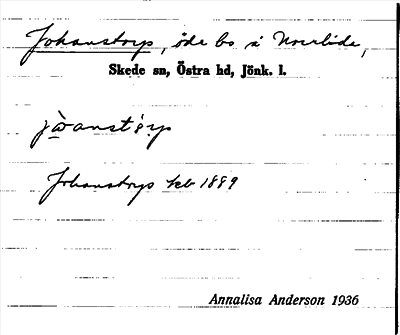 Johanstorp, öde bs å Norrlida,
Skede sn, Östra hd, Jönk. l.
Johanstorp kb 1889
Annalisa Anderson 1936